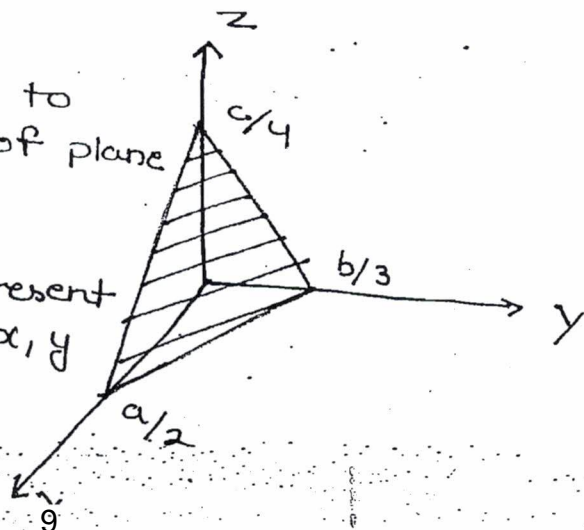 z
to
c/4
of plane
b/3
resent
x, y
y
a/2
9